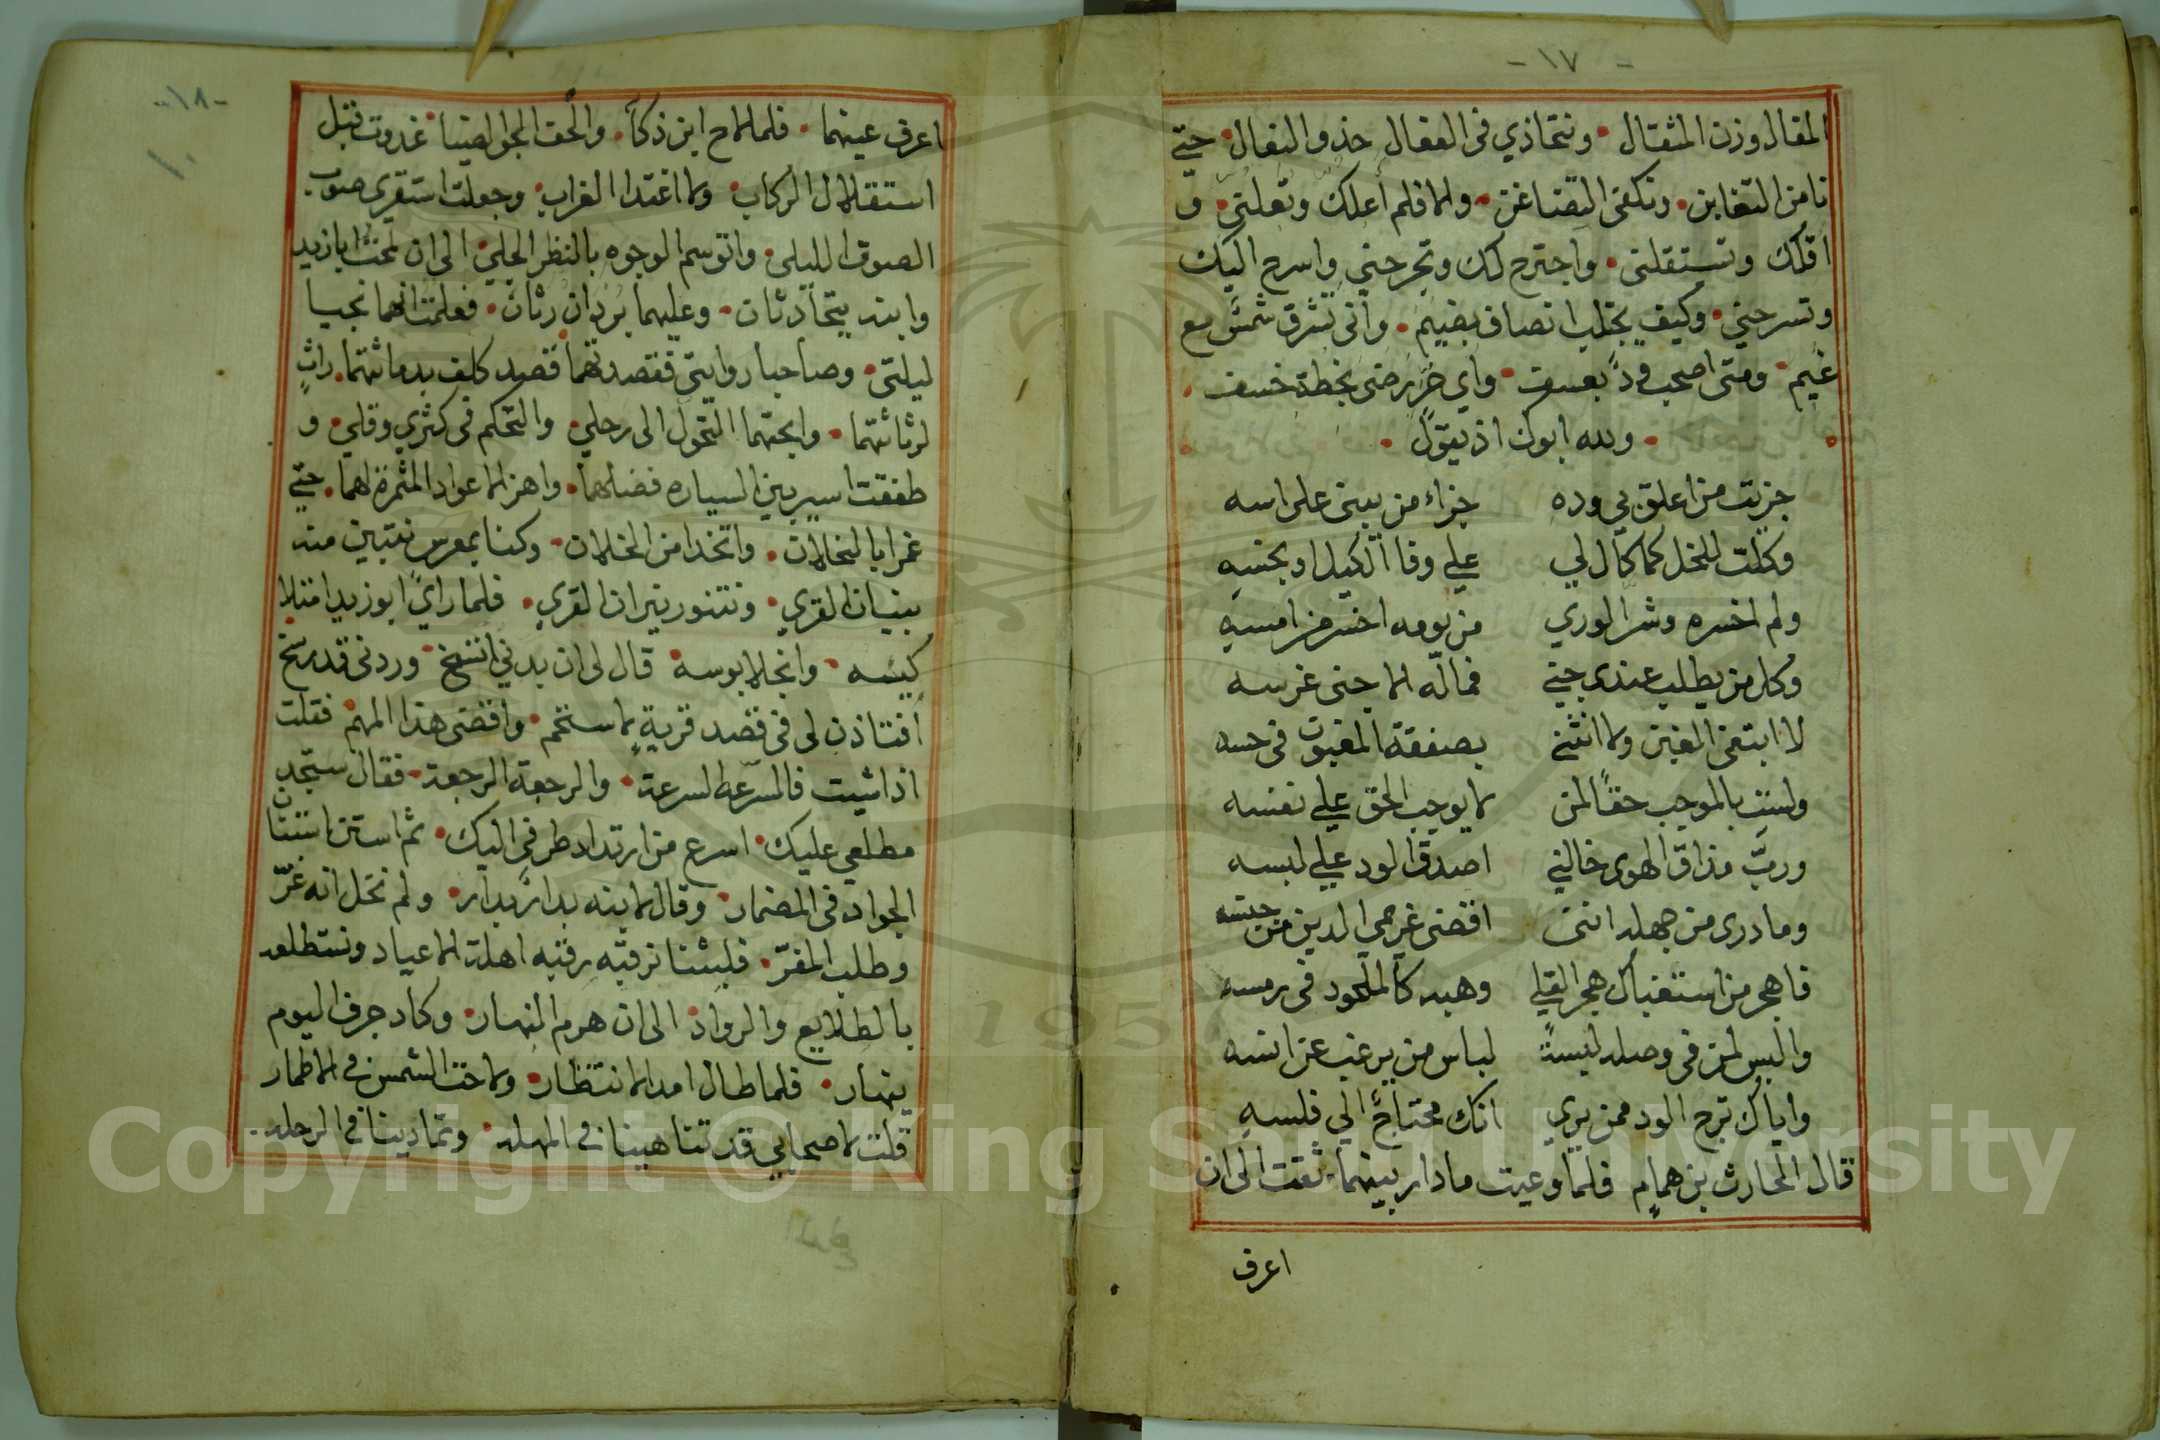 - ١٧ -
المقال وزن المثقال ونتحاذي في الفعال حذو النعال حتي
نامن التغابن ونكفي التضاغن والا فلم أعلك وتعلني و
اقلك وتستقلني واجترح لك وتجرحني واسرح اليك
وتسرحني وكيف يجتلب انصاف بضيم وأنى تشرق شمس مع
غيم ومتى اصحب ودّ بعسف واي حرّ رضى بخطة خسف
ولله ابوك اذ يقول
جزيت من اعلق بي وده جزاء من يبنى على اسه
وكلت للخل كما كال لي علي وفا الكيل او بخسه
ولم اخسره وشر الوري من يومه اخسر من امسه
وكل من يطلب عندي جني فماله الا جنى غرسه
لا ابتغي الغبن ولا انثني بصفقة المغبون في حسه
ولست بالموجب حقا لمن لا يوجب الحق علي نفسه
وربّ مذاق الهوى خالني اصدق الود علي لبسه
وما درى من جهله انني اقضى غريمي الدين من جنسه
فاهجر من استغباك هجر القلي وهبه كالملحود في رمسه
والبس لمن في وصله لبسة لباس من يرغب عن انسه
واياك ترج الود ممن يري انك محتاج الي فلسه
قال الحارث بن همام فلما وعيت ما دار بينهما تقت الى ان
اعرف
- ١٨ -
١٠
اعرف عينهما فلما لاح ابن ذكآ والحف الجو الضيا غدوت قبل
استقلال الركاب ولا اغتدا الغراب وجعلت استقرى صوب
الصوت الليلي واتوسم الوجوه بالنظر الجلي الى ان لمحت ابا زيد
وابنه يتحادثان وعليهما بردان رثان فعلمت انهما نجيا
ليلتي وصاحبا روايتي فقصدتهما قصد كلف بدماثتهما راثٍ
لرثاثتهما وابحتهما التحول الى رحلي والتحكم في كثري وقلي و
طفقت اسير بين السياره فضلهما واهز الاعواد المثمرة لهما حتي
غمرا بالنحلان واتخذا من الخلان وكنا بمعرس نتبين منه
بنيان القري ونتنور نيران القري فلما رأي ابو زيد امتلا
كيسه وانجلا بوسه قال لى ان بدني اتسخ ودرني قد رسخ
افتاذن لى في قصد قرية لاستحم واقضى هذا المهم فقلت
اذا شيت فالسرعة السرعة والرجعة الرجعة فقال ستجد
مطلعي عليك اسرع من ارتداد طرفي اليك ثم استن استنان
الجواد في المضمار وقال لابنه بدار بدار ولم نخل انه غرّ
وطلب المفرّ فلبثنا نرقبه رقبه اهلة الاعياد ونستطلعه
بالطلايع والرواد الى ان هرم النهار وكاد جرف اليوم
ينهار فلما طال امد الانتظار ولاحت الشمس في الاطمار
قلت لاصحابي قد تناهينا في المهله وتمادينا في الرحله
Copyright © King Saud University
1957